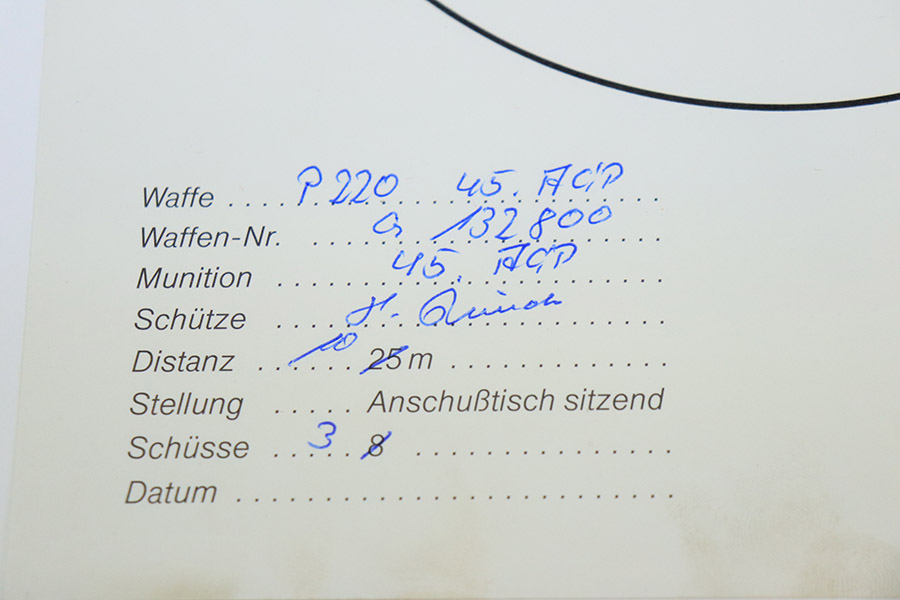 Waffe .... P 220 45. ACP
Waffen-Nr. .... G 132800
Munition .... 45. ACP
Schütze ....
Distanz .... 10 25 m ....
Stellung ..... Anschußtisch sitzend
Schüsse .... 3 8 ....
Datum ....